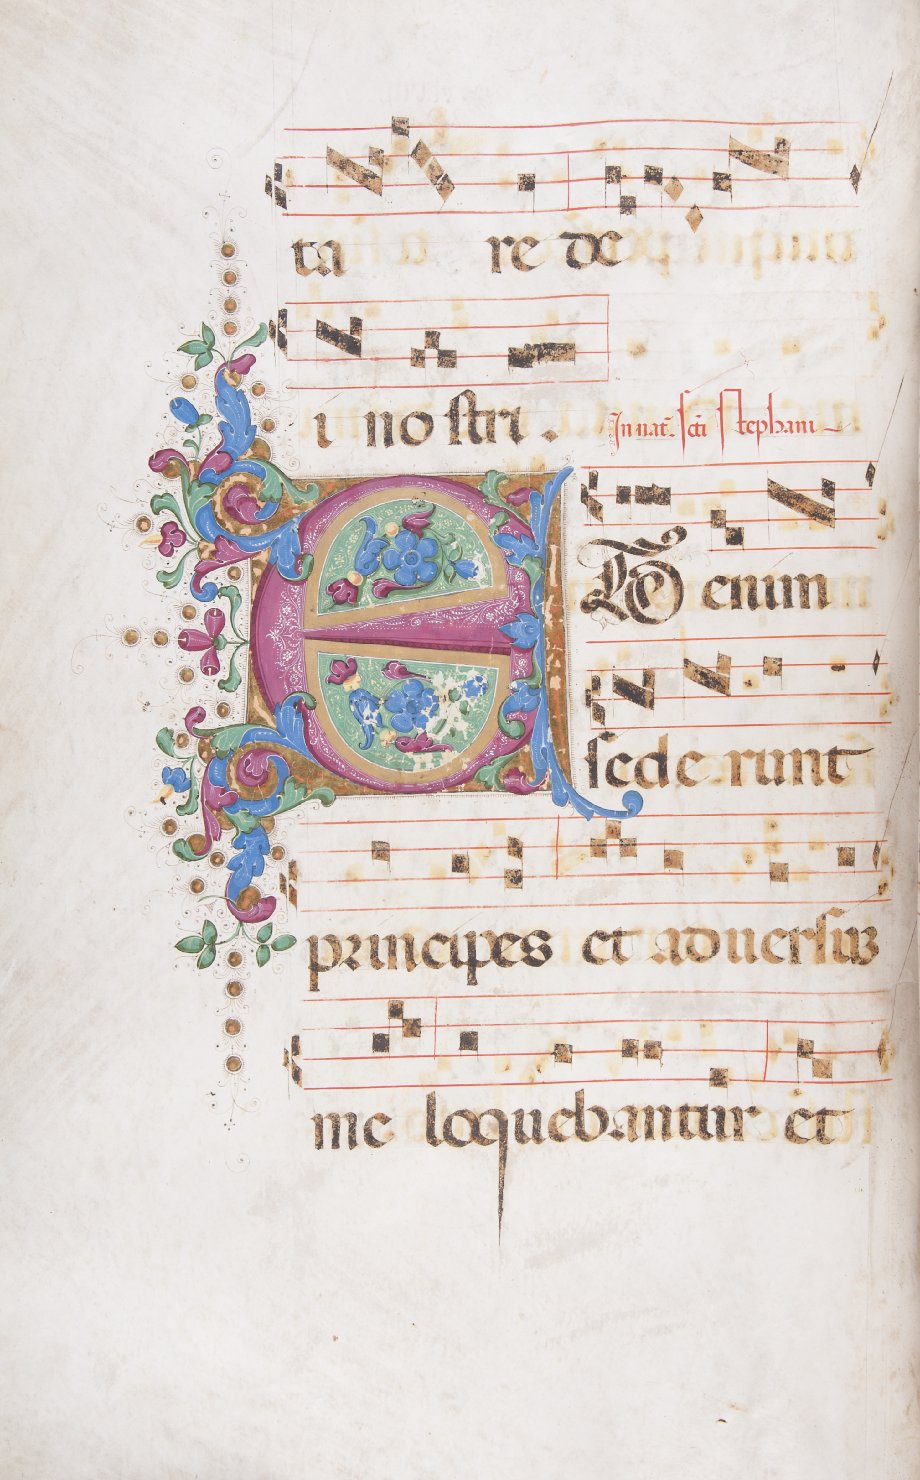 ta re de
i nostri.
In nat. scti stephani
ET enim
sederunt
principes et aduersus
me loquebantur et